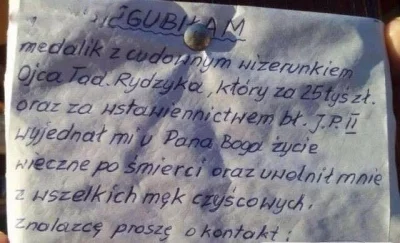 ZGUBIŁAM
medalik z cudownym wizerunkiem
Ojca Tad. Rydzyka, który za 25 tyś zł.
oraz za wstawiennictwem bł. J.P. II
wyjednał mi u Pana Boga życie
wieczne po śmierci oraz uwolnił mnie
z wszelkich mąk czyścowych.
Znalazcę proszę o kontakt: